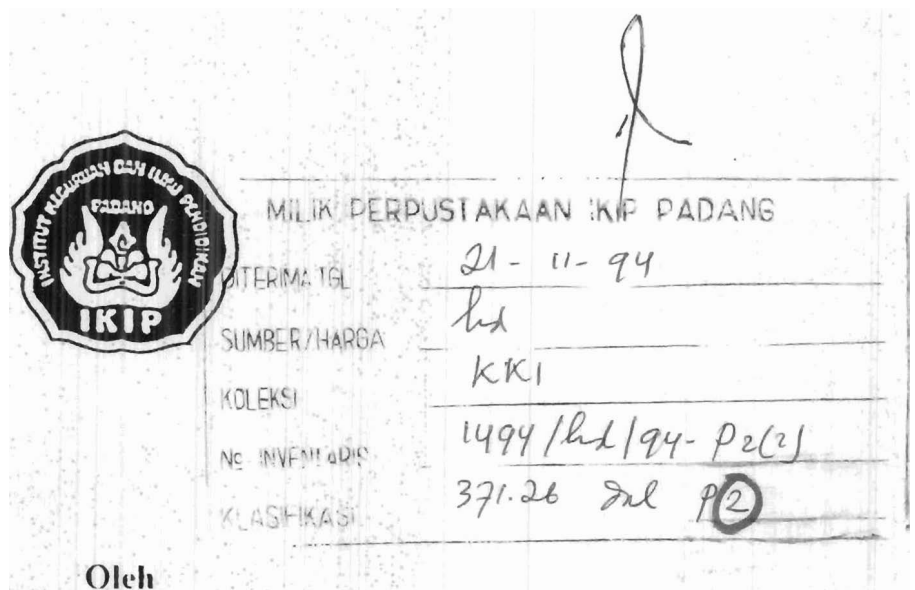 INSTITUT KEGURUAN DAN ILMU PENDIDIKAN
PADANG
IKIP
MILIK PERPUSTAKAAN IKIP PADANG
DITERIMA TGL 21 - 11 - 94
SUMBER/HARGA hd
KOLEKSI KKI
No INVENTARIS 1494/hd/94- P2(2)
KLASIFIKASI 371.26 P2
Oleh